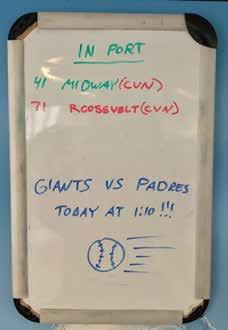 IN PORT
41 MIDWAY (CVN)
71 ROOSEVELT (CVN)
GIANTS VS PADRES
TODAY AT 1:10 !!!